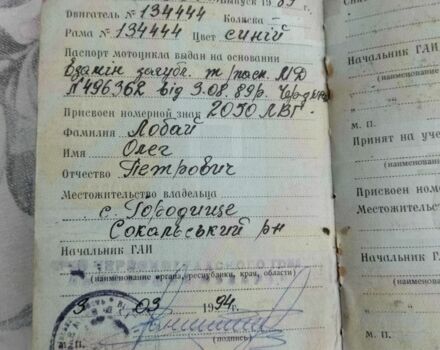 Выпуск 19 89 г.
Двигатель № 134444 Коляска
Рама № 134444 Цвет синій
Паспорт мотоцикла выдан на основании
Взамін
№496362 від 3.08.89р.
Присвоен номерной знак 2050 ЛВГ
Фамилия Лобай
Имя Олег
Отчество Петрович
Местожительство владельца
с. Городище
Сокальський рн
Начальник ГАИ
(наименование органа, республики, края, области)
3 03 1994г.
М. П. (подпись)
Начальник ГАИ
(наименование
М. П.
Принят на уче
(наименование
Присвоен номерной
Местожительство
Начальник ГАИ
(наименование